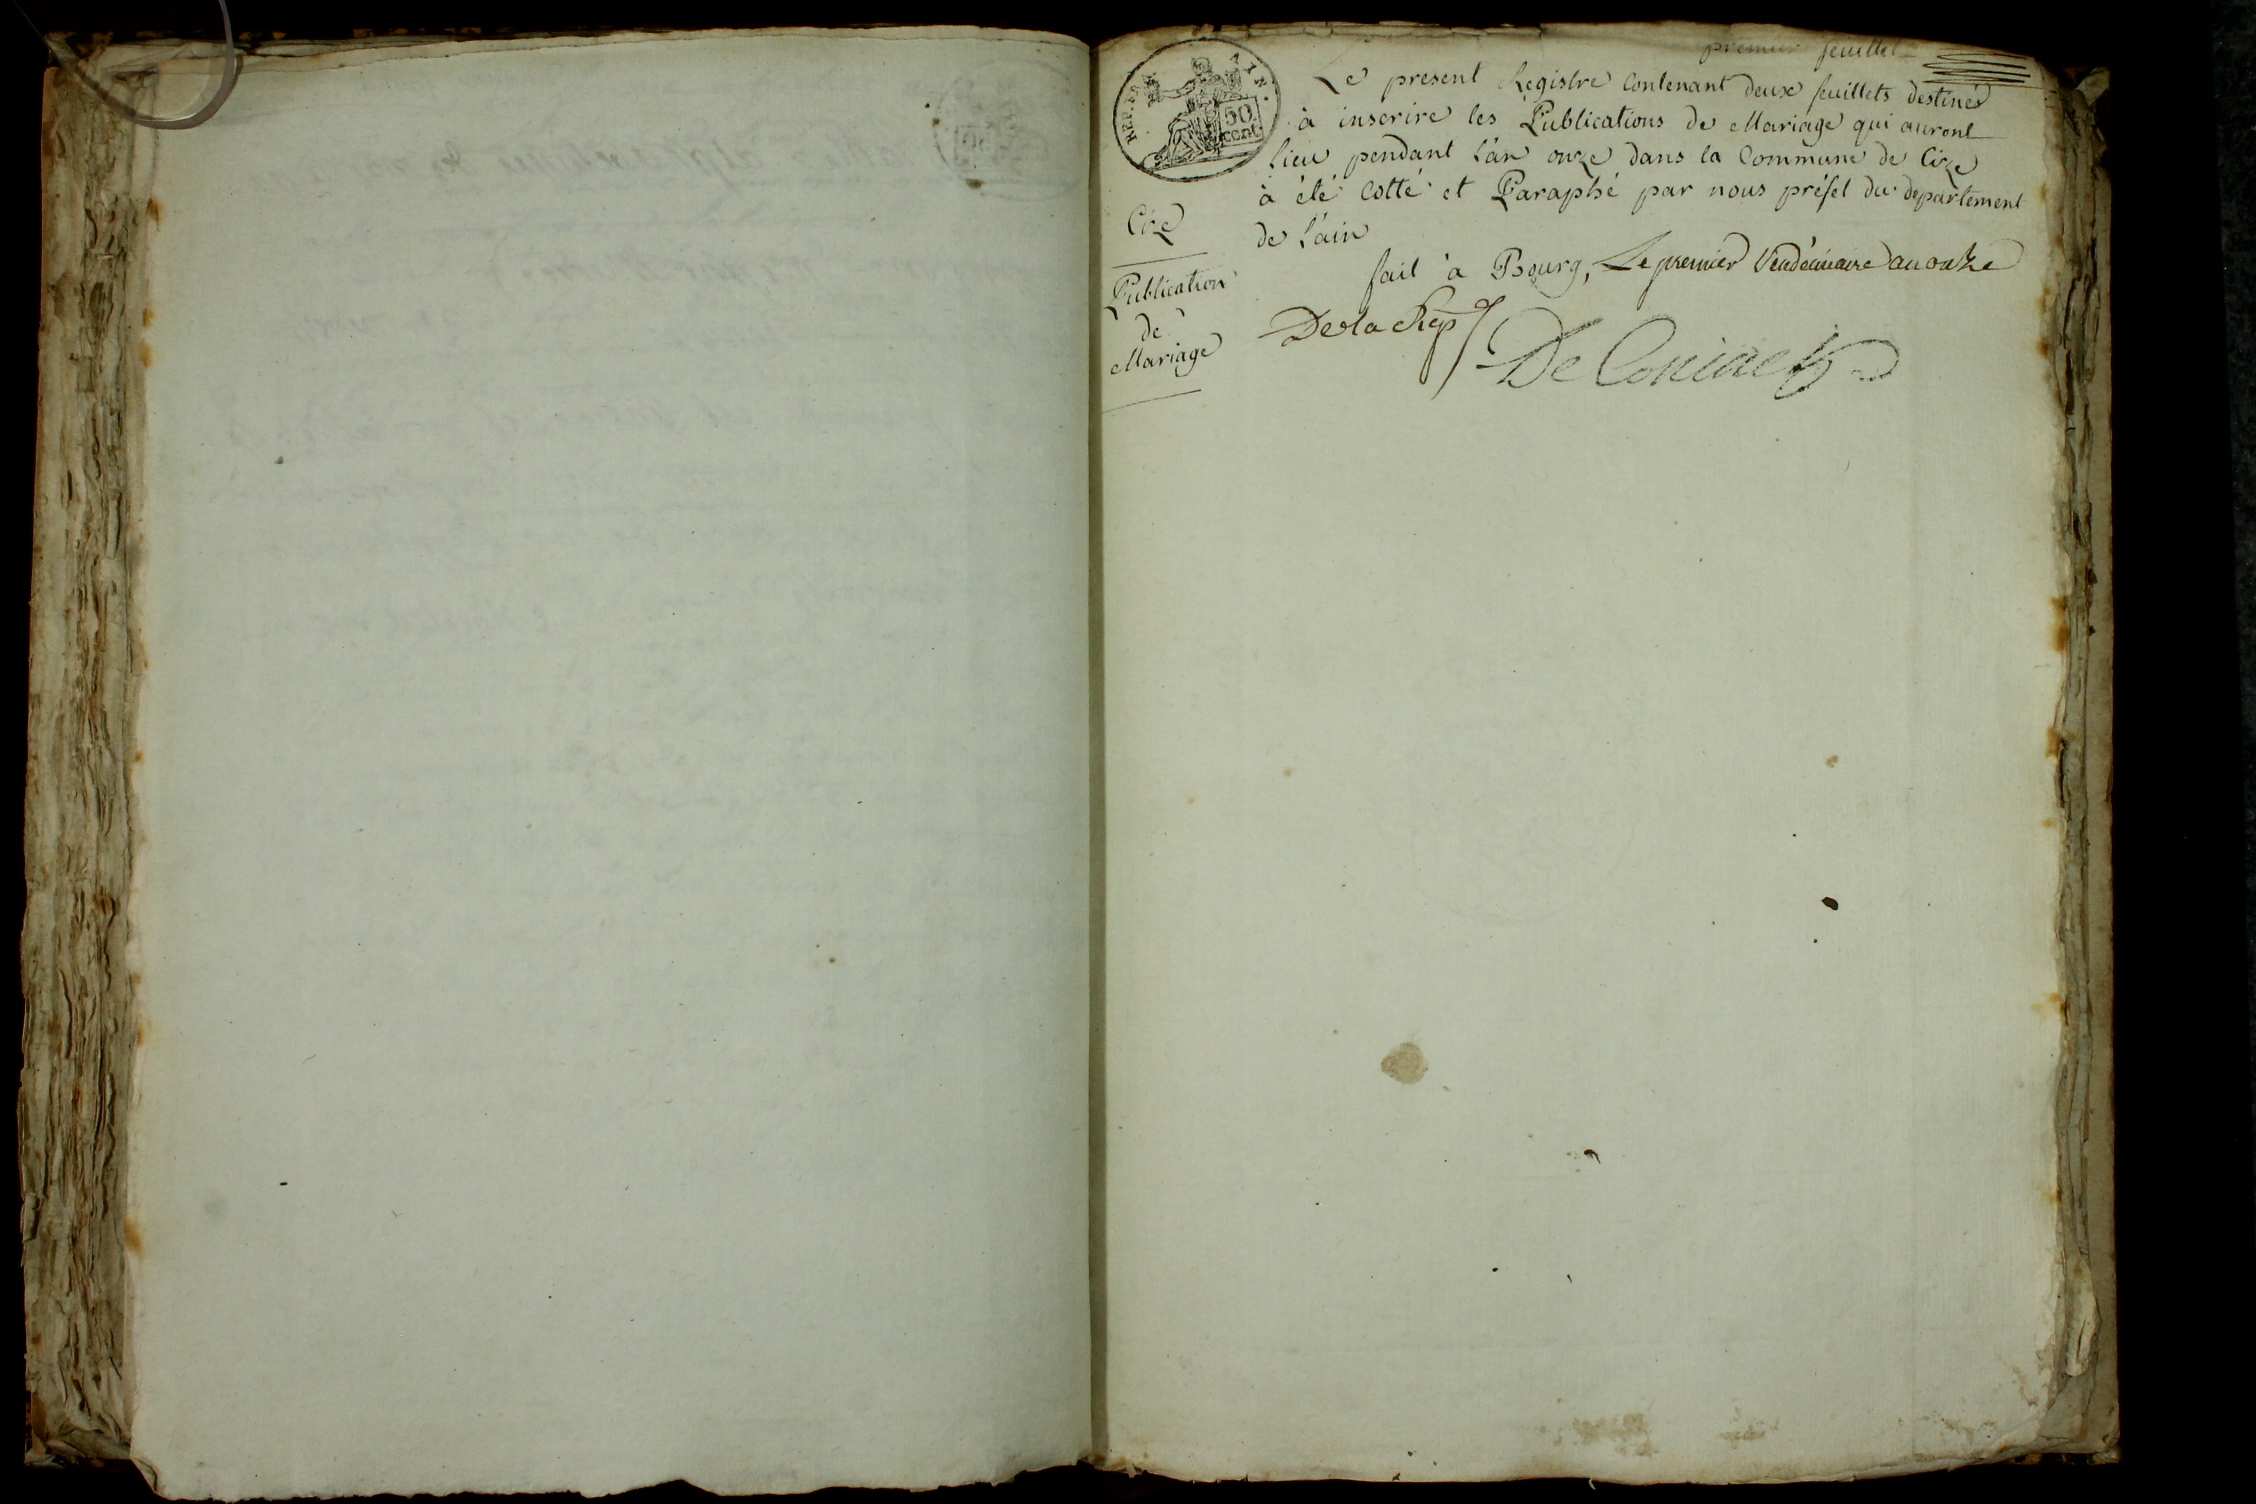 premier feuillet
REP. FRA
AIN.
50
cent.
Le present Registre Contenant deux feuillets destinés
à inscrire les Publications de Mariage qui auront
lieu pendant l'an onze dans la Commune de Cize
à été Cotté et Paraphé par nous préfet du departement
de l'ain
Cize
Publication
de
Mariage
fait à Bourg, Le premier Vendémiaire an onze
De la Rep
De Coninck